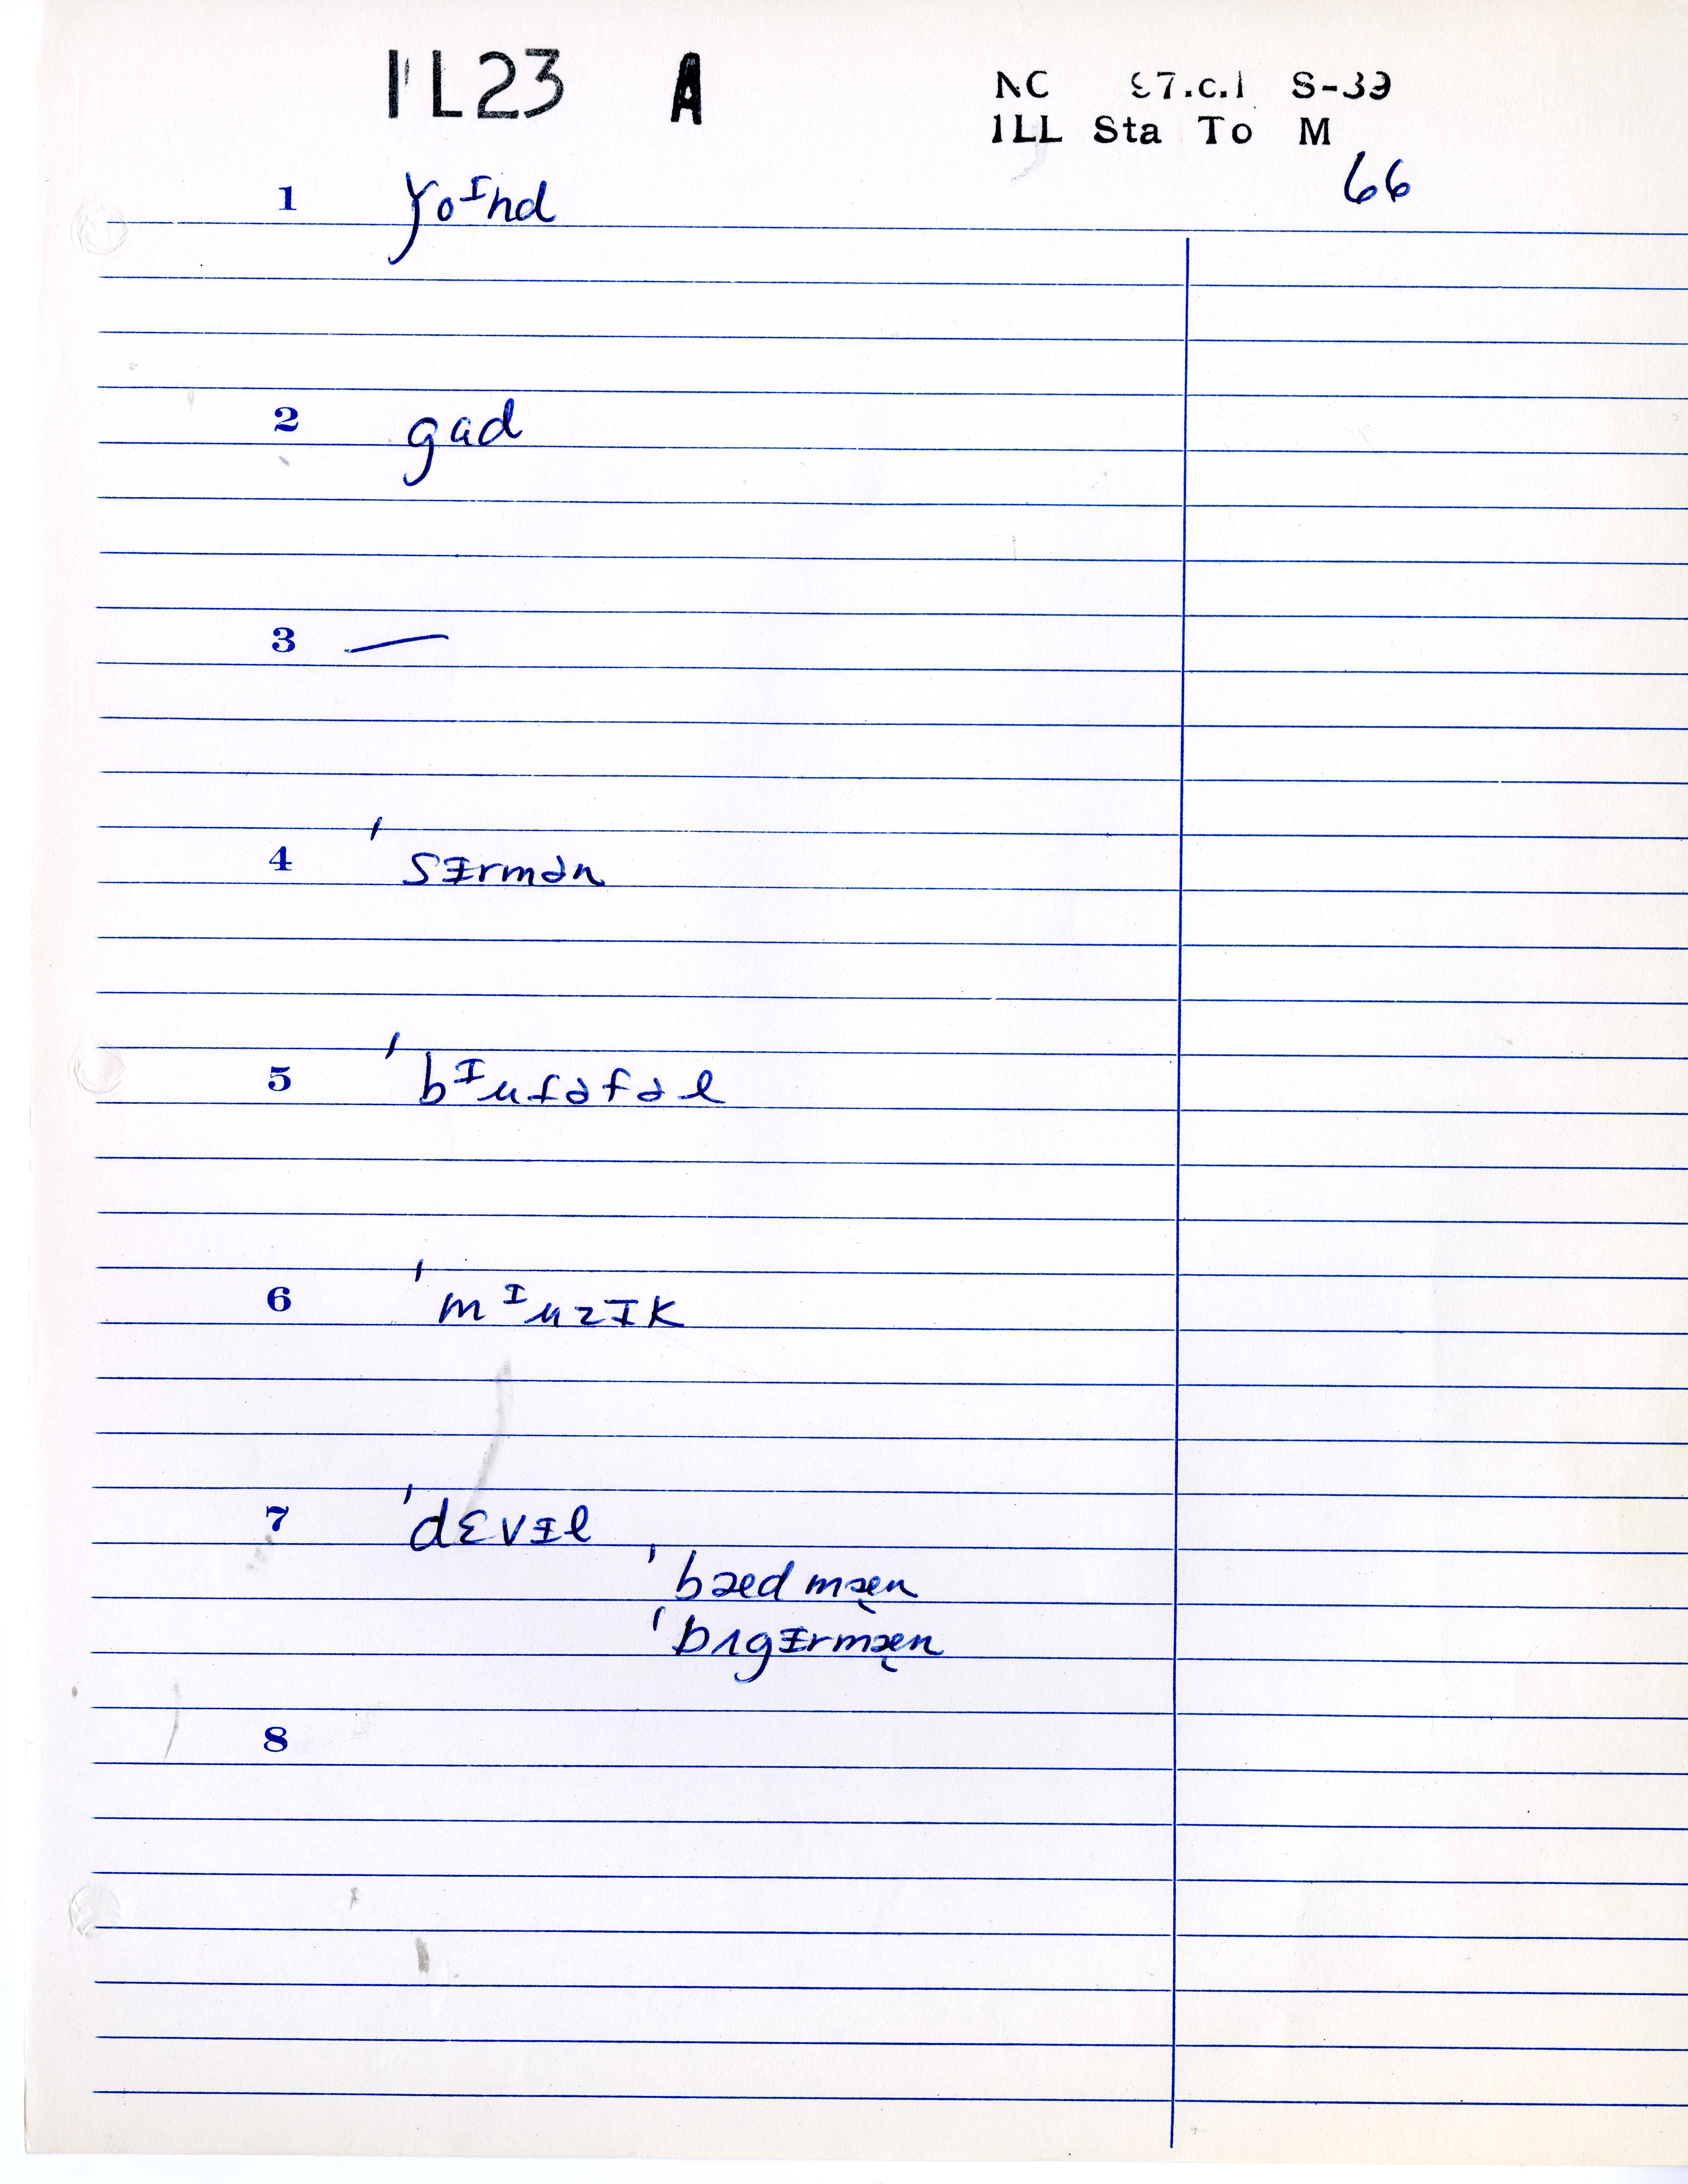 IL23 A
NC 87.c.1 S-39
ILL Sta To M
66
1 ɣoᴵnd
2 gad
3 —
4 ˈsᵻrmən
5 ˈbᴵufəfəl
6 ˈmᴵuzɪk
7 ˈdɛvᵻl
ˈbædmæ̨n
ˈbʌgᵻrmæ̨n
8